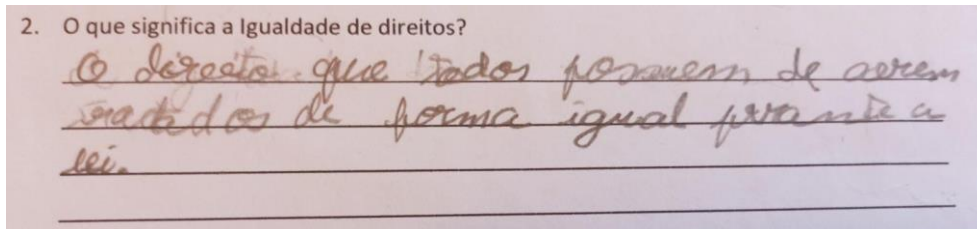 2. O que significa a Igualdade de direitos?
O direito que todos possuem de serem
tratados de forma igual perante a
lei.